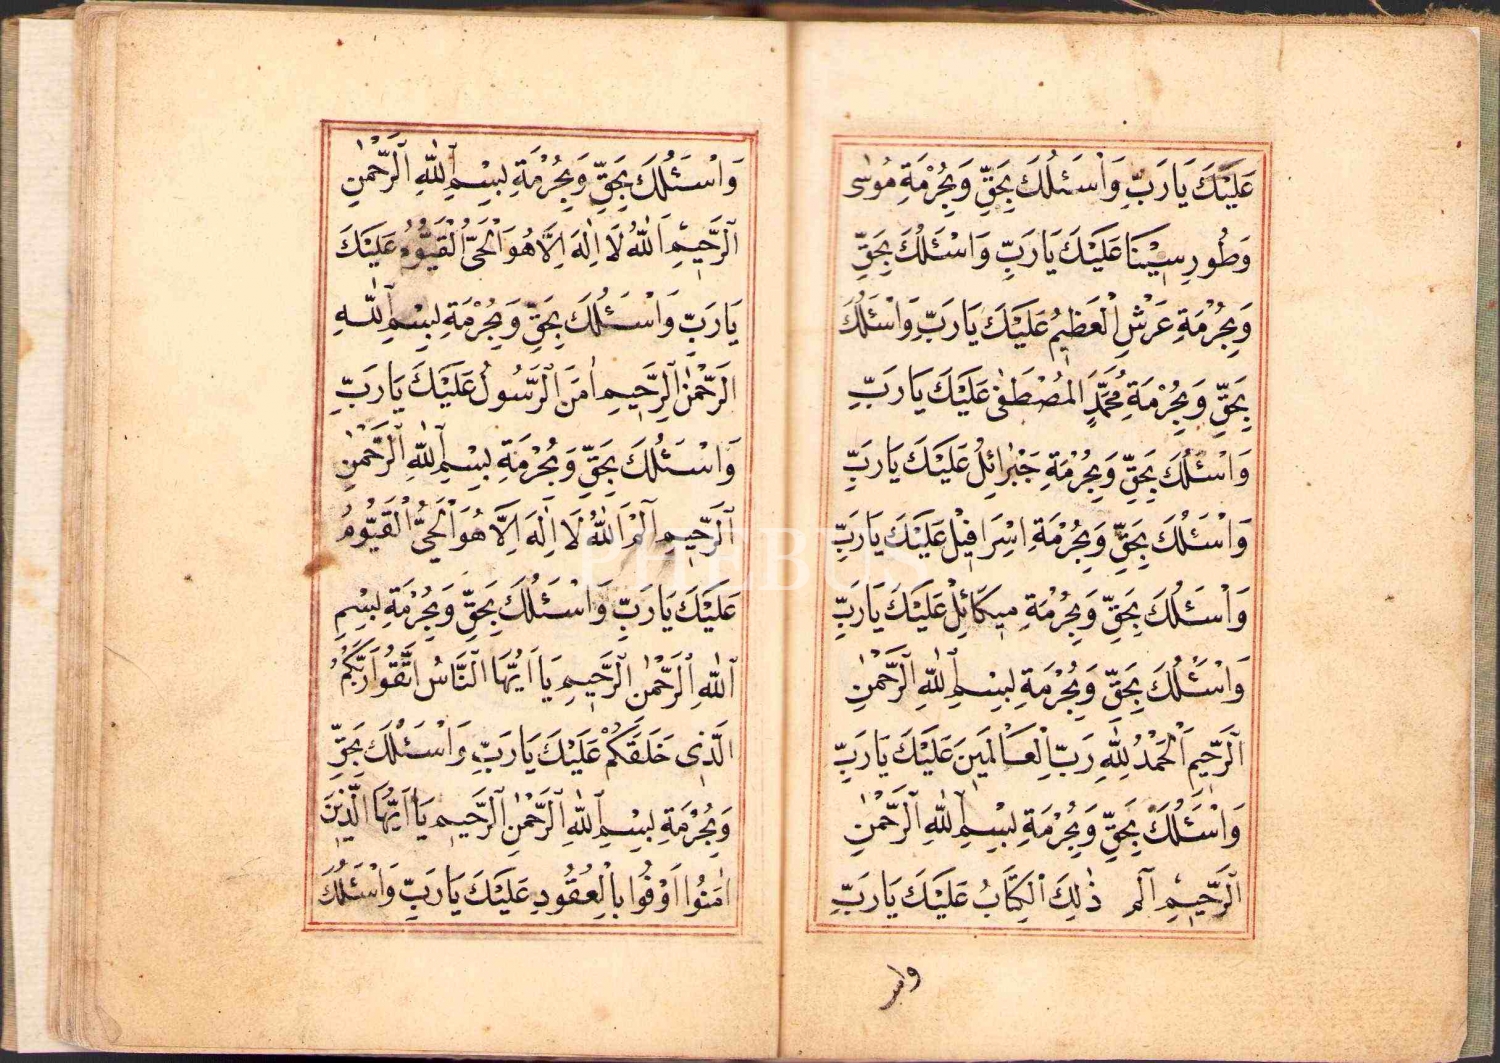 عَلَيْكَ يَا رَبِّ وَاَسْئَلُكَ بِحَقِّ وَبِحُرْمَةِ مُوسٰى
وَطُورِ سِيْنَا عَلَيْكَ يَا رَبِّ وَاَسْئَلُكَ بِحَقِّ
وَبِحُرْمَةِ عَرْشِ الْعَظِيْمِ عَلَيْكَ يَا رَبِّ وَاَسْئَلُكَ
بِحَقِّ وَبِحُرْمَةِ مُحَمَّدٍ المُصْطَفٰى عَلَيْكَ يَا رَبِّ
وَاَسْئَلُكَ بِحَقِّ وَبِحُرْمَةِ جَبْرَائِلُ عَلَيْكَ يَا رَبِّ
وَاَسْئَلُكَ بِحَقِّ وَبِحُرْمَةِ اِسْرَافِيْلْ عَلَيْكَ يَا رَبِّ
وَاَسْئَلُكَ بِحَقِّ وَبِحُرْمَةِ مِيكَائِلْ عَلَيْكَ يَا رَبِّ
وَاَسْئَلُكَ بِحَقِّ وَبِحُرْمَةِ بِسْمِ اللّٰهِ الرَّحْمٰنِ
الرَّحِيْمِ اَلْحَمْدُ لِلّٰهِ رَبِّ الْعَالَمِيْنَ عَلَيْكَ يَا رَبِّ
وَاَسْئَلُكَ بِحَقِّ وَبِحُرْمَةِ بِسْمِ اللّٰهِ الرَّحْمٰنِ
الرَّحِيْمِ الٓمٓ ذٰلِكَ الْكِتَابُ عَلَيْكَ يَا رَبِّ
واس
وَاَسْئَلُكَ بِحَقِّ وَبِحُرْمَةِ بِسْمِ اللّٰهِ الرَّحْمٰنِ
الرَّحِيْمِ اَللّٰهُ لَا اِلٰهَ اِلَّا هُوَ الْحَىُّ الْقَيُّوْمُ عَلَيْكَ
يَا رَبِّ وَاَسْئَلُكَ بِحَقِّ وَبِحُرْمَةِ بِسْمِ اللّٰهِ
الرَّحْمٰنِ الرَّحِيْمِ اٰمَنَ الرَّسُولُ عَلَيْكَ يَا رَبِّ
وَاَسْئَلُكَ بِحَقِّ وَبِحُرْمَةِ بِسْمِ اللّٰهِ الرَّحْمٰنِ
الرَّحِيْمِ الٓمٓ اَللّٰهُ لَا اِلٰهَ اِلَّا هُوَ الْحَىُّ الْقَيُّومُ
عَلَيْكَ يَا رَبِّ وَاَسْئَلُكَ بِحَقِّ وَبِحُرْمَةِ بِسْمِ
اللّٰهِ الرَّحْمٰنِ الرَّحِيْمِ يَا اَيُّهَا النَّاسُ اتَّقُوا رَبَّكُمُ
الَّذِى خَلَقَكُمْ عَلَيْكَ يَا رَبِّ وَاَسْئَلُكَ بِحَقِّ
وَبِحُرْمَةِ بِسْمِ اللّٰهِ الرَّحْمٰنِ الرَّحِيْمِ يَا اَيُّهَا الَّذِيْنَ
اٰمَنُوا اَوْفُوا بِالْعُقُودِ عَلَيْكَ يَا رَبِّ وَاَسْئَلُكَ
PHEBUS